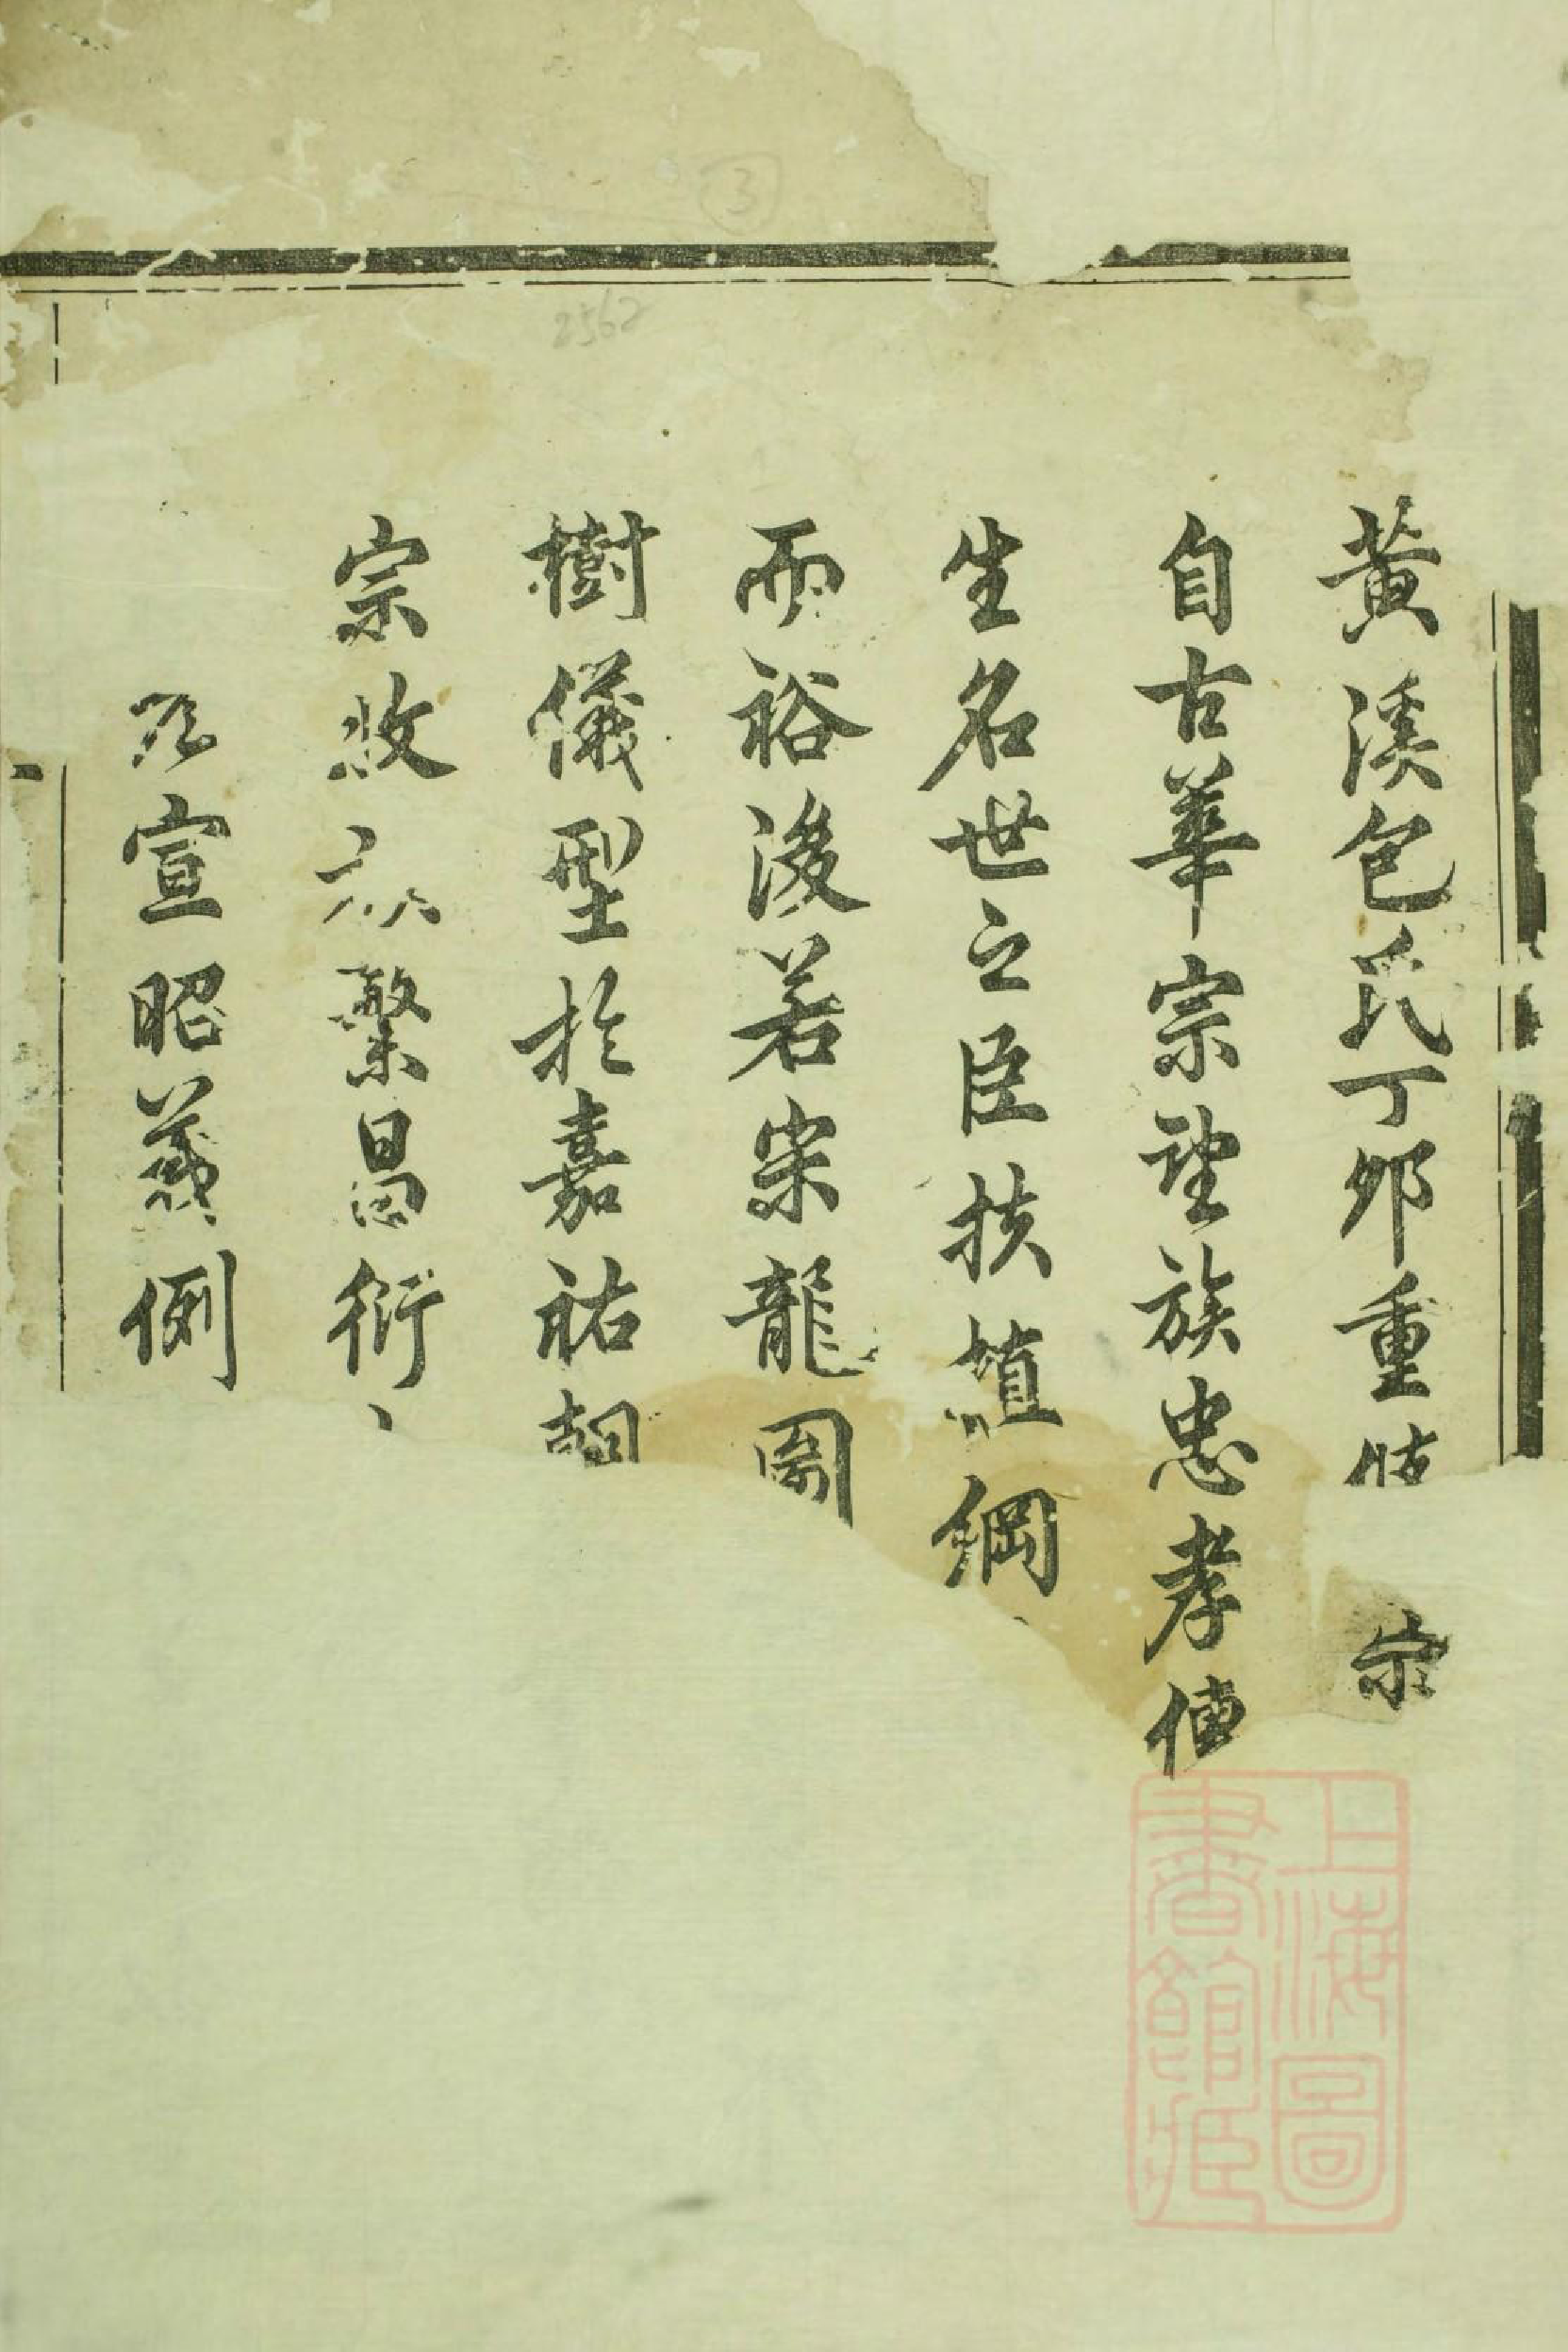 黃溪包氏丁卯重 宗
自古華宗望族忠孝傳
生名世之臣扶植綱
而裕後若宋龍圖
樹儀型於嘉祐
宗收族繁昌衍
宣昭義例
上海圖
書館藏
2562
③